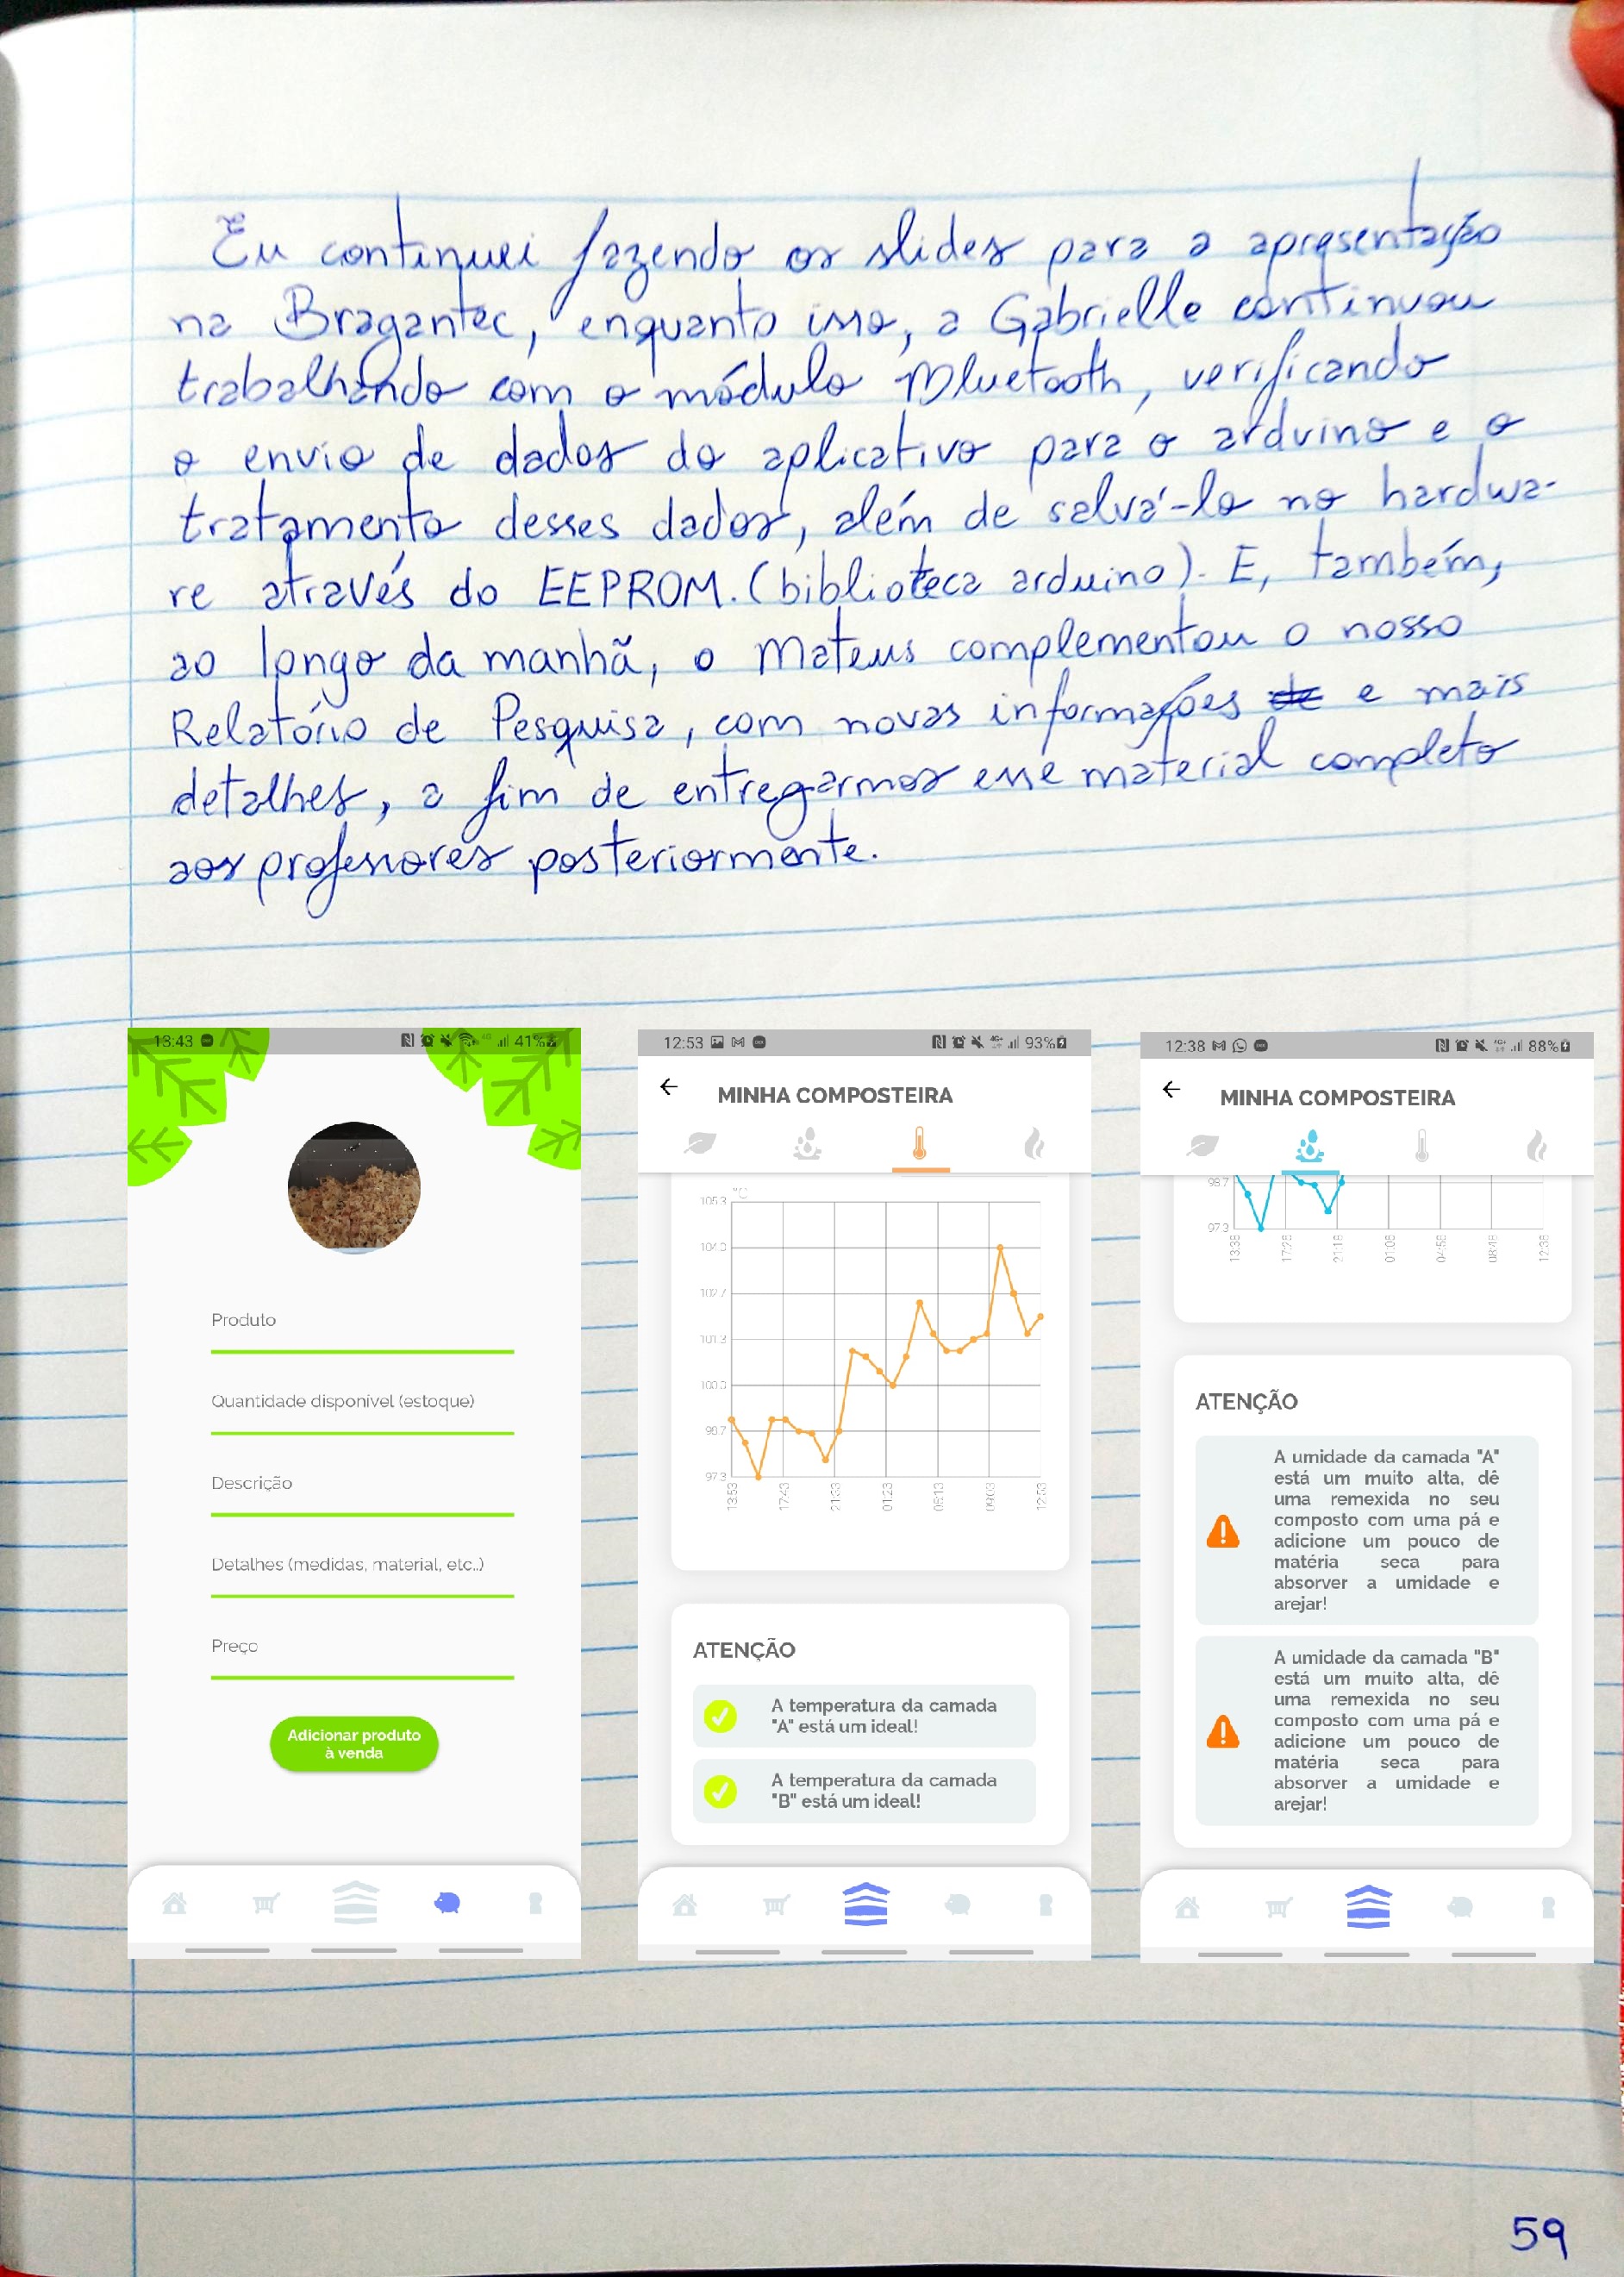 Eu continuei fazendo os slides para a apresentação
na Bragantec, enquanto isso, a Gabrielle continuou
trabalhando com o módulo Bluetooth, verificando
o envio de dados do aplicativo para o arduino e o
tratamento desses dados, além de salvá-lo no hardwa-
re através do EEPROM. (biblioteca arduino). E, também,
ao longo da manhã, o Mateus complementou o nosso
Relatório de Pesquisa, com novas informações de e mais
detalhes, a fim de entregarmos esse material completo
aos professores posteriormente.
13:43 4G 41%
Produto
Quantidade disponível (estoque)
Descrição
Detalhes (medidas, material, etc..)
Preço
Adicionar produto
à venda
12:53 93%
MINHA COMPOSTEIRA
°C
105.3
104.0
102.7
101.3
100.0
98.7
97.3
13:53 17:43 21:33 01:23 05:13 09:03 12:53
ATENÇÃO
A temperatura da camada
"A" está um ideal!
A temperatura da camada
"B" está um ideal!
12:38 88%
MINHA COMPOSTEIRA
98.7
97.3
13:38 17:28 21:18 01:08 04:58 08:48 12:38
ATENÇÃO
A umidade da camada "A"
está um muito alta, dê
uma remexida no seu
composto com uma pá e
adicione um pouco de
matéria seca para
absorver a umidade e
arejar!
A umidade da camada "B"
está um muito alta, dê
uma remexida no seu
composto com uma pá e
adicione um pouco de
matéria seca para
absorver a umidade e
arejar!
59